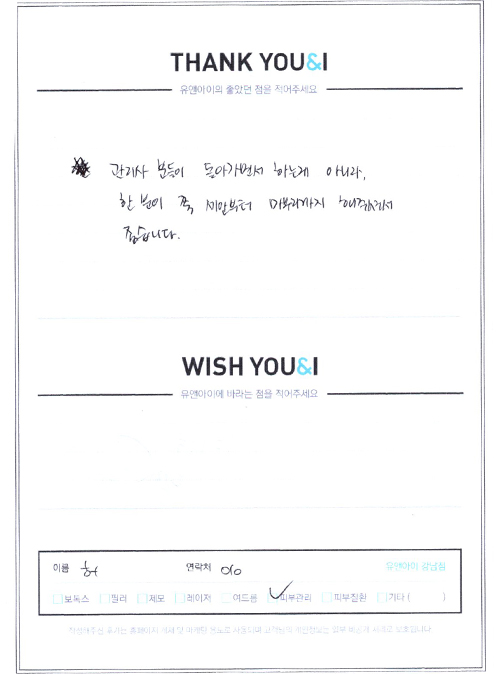 THANK YOU&I
유앤아이의 좋았던 점을 적어주세요
관리사 분들이 돌아가면서 하는게 아니라,
한 분이 쭉 세안부터 마무리까지 해주셔서
좋습니다.
WISH YOU&I
유앤아이에 바라는 점을 적어주세요
이름 허 연락처 010 유앤아이 강남점
보톡스 필러 제모 레이저 여드름 피부관리 피부질환 기타 ( )